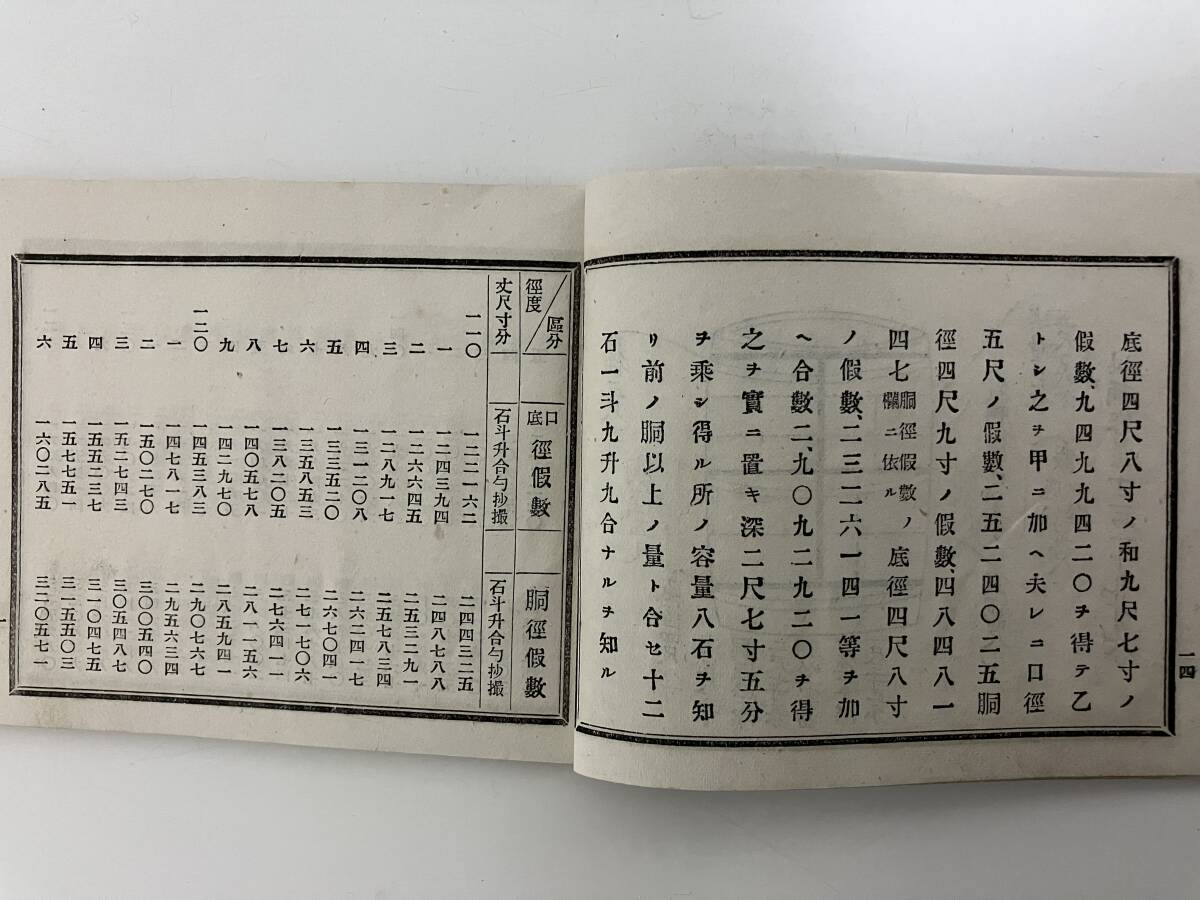 一四
底徑四尺八寸ノ和九尺七寸ノ
假數、九四九九四二〇ヲ得テ乙
トシ之ヲ甲ニ加ヘ夫レニ口徑
五尺ノ假數、二五二四〇二五胴
徑四尺九寸ノ假數、四八四八一
四七胴徑假數ノ欄ニ依ル底徑四尺八寸
ノ假數、二三二六一四一等ヲ加
ヘ合數二、九〇九二九二〇ヲ得
之ヲ實ニ置キ深二尺七寸五分
ヲ乘シ得ル所ノ容量八石ヲ知
リ前ノ胴以上ノ量ト合セ十二
石一斗九升九合ナルヲ知ル
區分 徑度 口底徑假數 胴徑假數
丈尺寸分 石斗升合勺抄撮 石斗升合勺抄撮
一一〇 一二二一六二 二四四三二五
一 一二四三九四 二四八七八八
二 一二六六四五 二五三二九一
三 一二八九一七 二五七八三四
四 一三一二〇八 二六二四一七
五 一三三五二〇 二六七〇四一
六 一三五八五三 二七一七〇六
七 一三八二〇五 二七六四一一
八 一四〇五七八 二八一一五六
九 一四二九七〇 二八五九四一
一二〇 一四五三八三 二九〇七六七
一 一四七八一七 二九五六三四
二 一五〇二七〇 三〇〇五四〇
三 一五二七四三 三〇五四八七
四 一五五二三七 三一〇四七五
五 一五七七五一 三一五五〇三
六 一六〇二八五 三二〇五七一